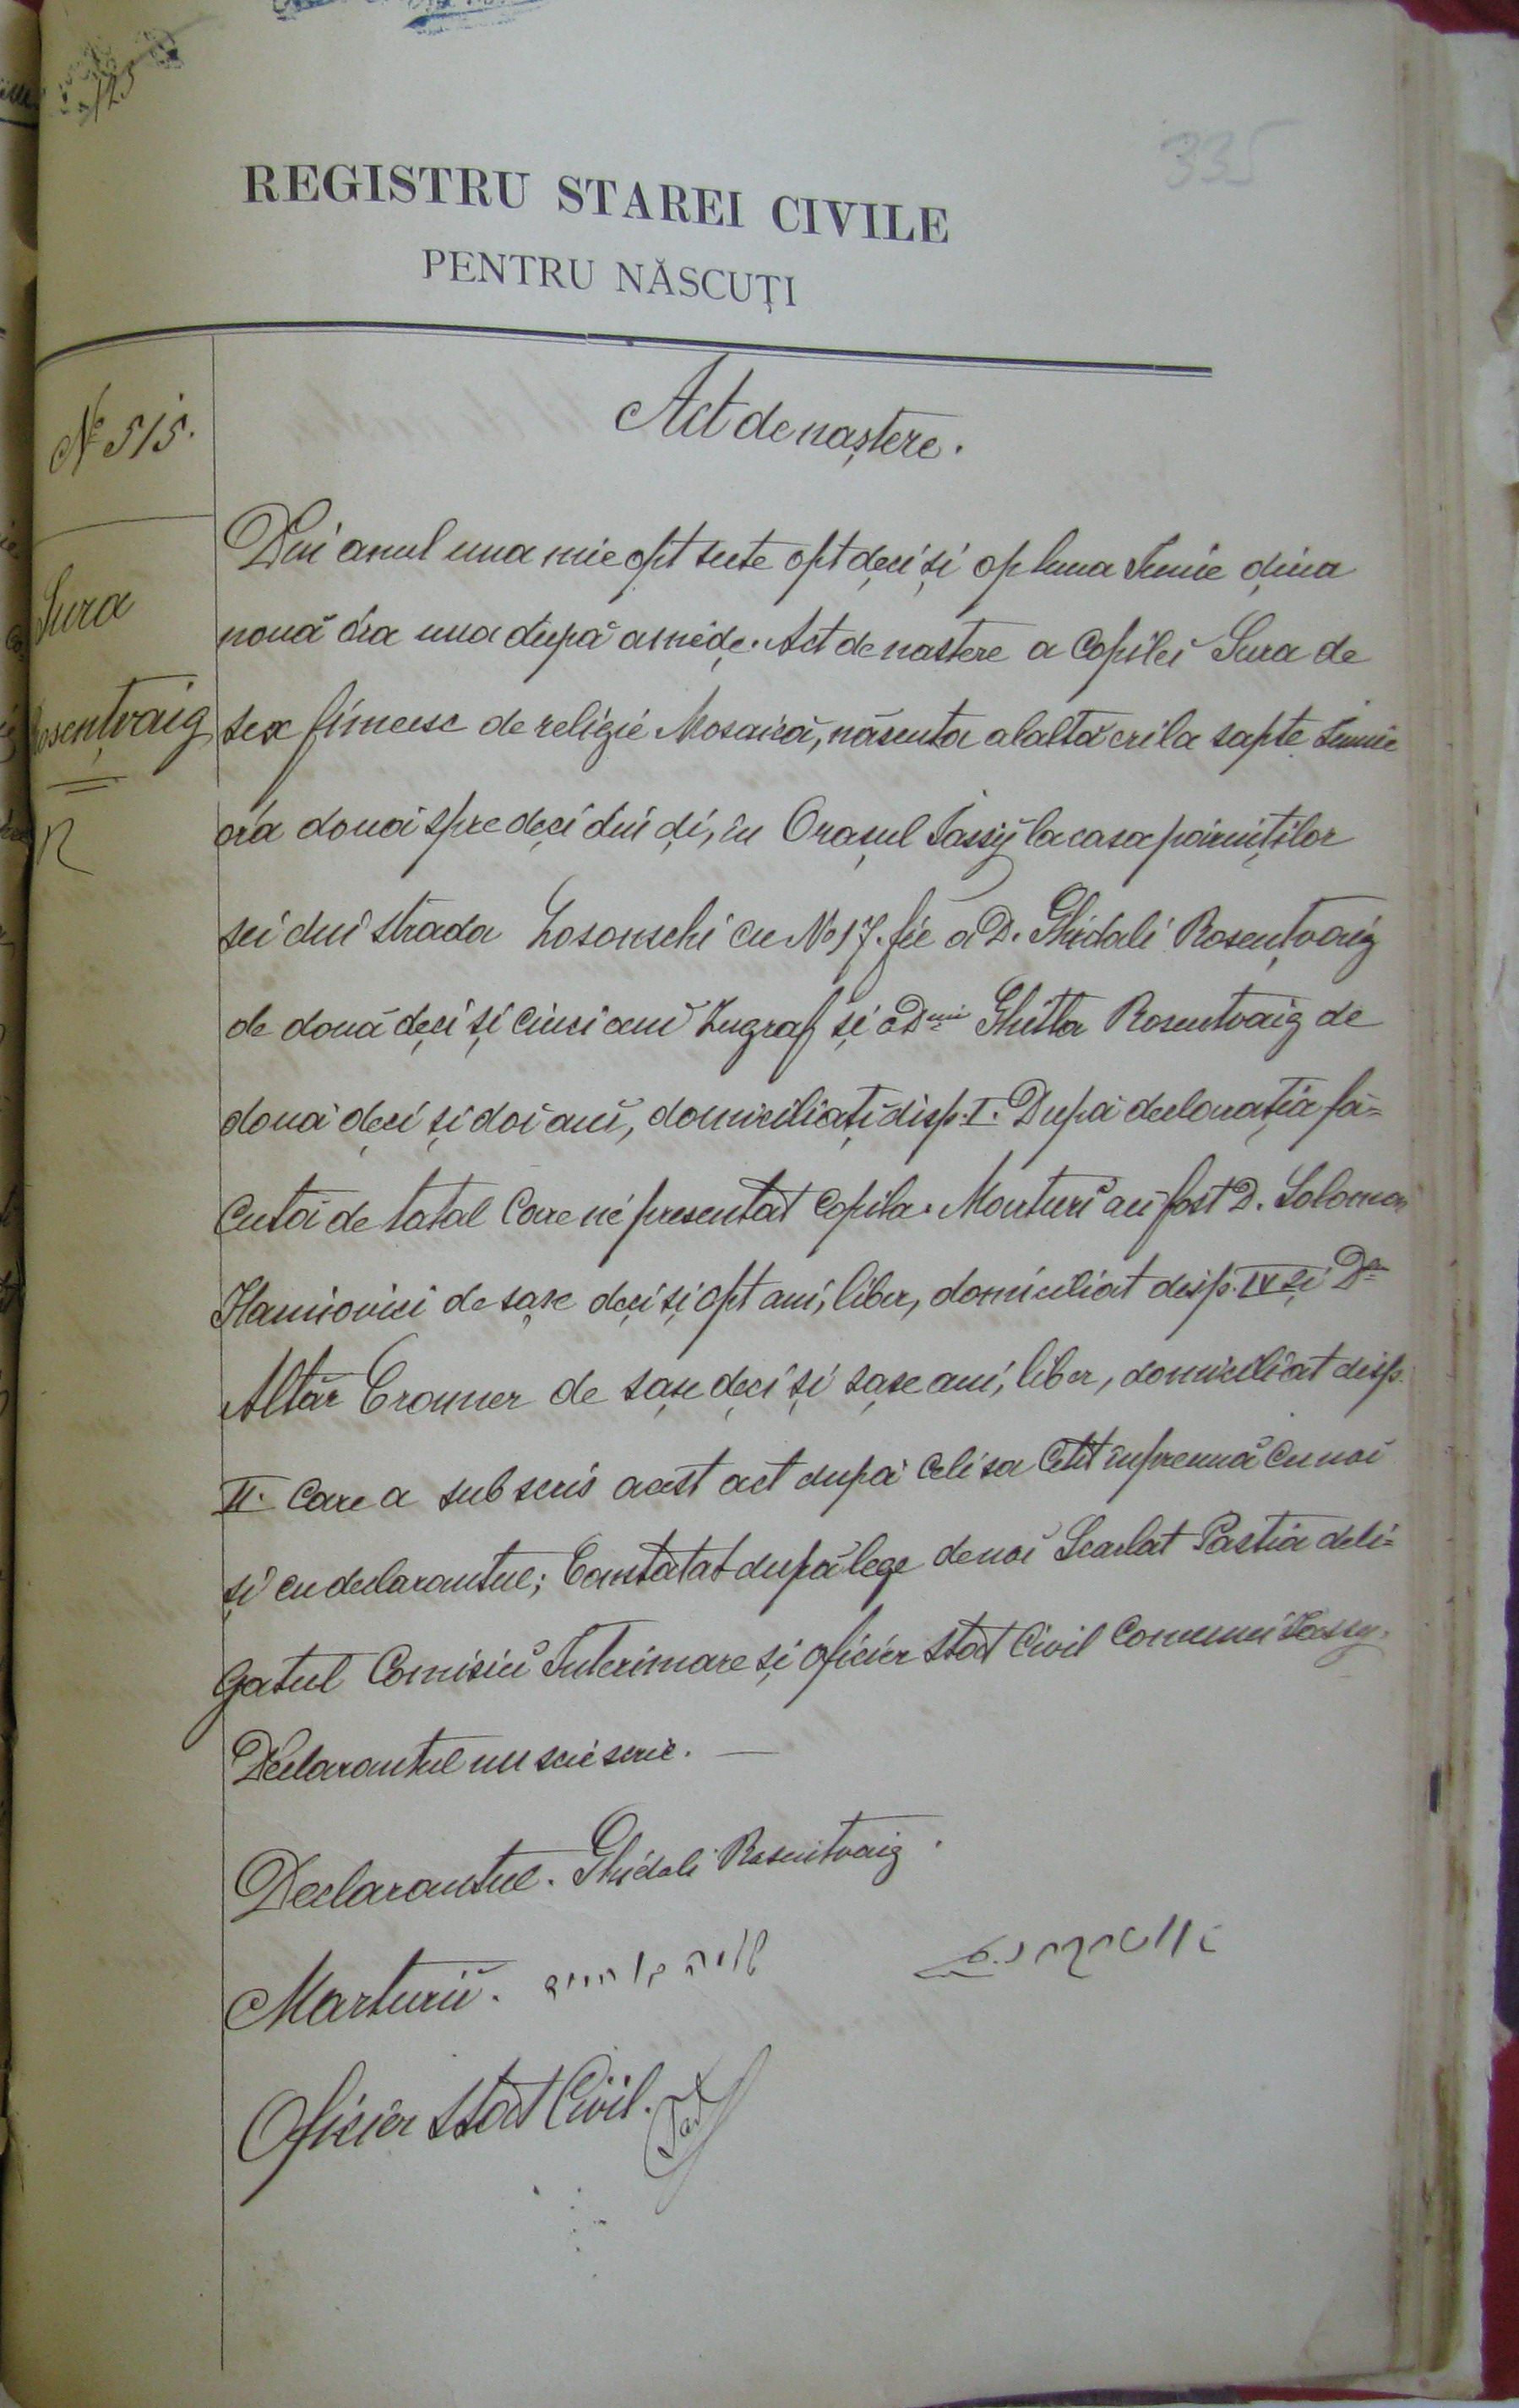 335
REGISTRU STAREI CIVILE
PENTRU NĂSCUȚI
Nº 515.
Sura
Rosențvaig
Act de naștere.
Din anul una mie opt sute opt deci și op luna Iunie dina
nouă óra una după amede. Act de nastere a copilei Sura de
sex fimeesc de religie Mosaică, născuta alaltă eri la sapte Iunie
ora douoi spre deci din di, în Orașul Iassy la casa părinților
sei din strada No 17. fie a D. Ghidali Rosențvaig
de două deci și cinci ani Zugraf și a Dnei Ghitla Rosentvaig de
două deci și doi ani, domiciliați disp. I. După declarația fă-
cută de tatal care ne presentat copila. Marturi au fost D. Solomon
Haimovici de sase deci și opt ani, liber, domiciliat disp. IV și D
Altăr Cramer de sase deci și sase ani, liber, domiciliat disp.
II. care a subscris acest act după ce li sa cetit înpreună cu noi
și cu declarantul; Constatat după lege de noi Scarlat Pastia deli-
gatul Comisiei Interimare și oficier Stat Civil Comunei Iassy.
Declarantul nu scie scrie. —
Declarantul. Ghidali Rosentvaig.
Marturii.
Oficier Stat Civil.